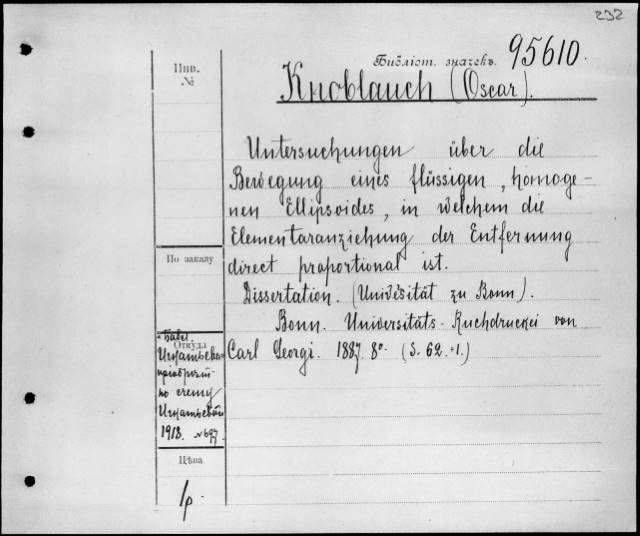 232
Библіот. значекъ 95610.
Инв.
№
Knoblauch (Oscar).
Untersuchungen über die
Bewegung eines flüssigen, homoge-
nen Ellipsoides, in welchem die
Elementaranziehung der Entfernung
direct proportional ist.
Dissertation. (Univesität zu Bonn).
Bonn. Universitäts-Buchdruckei von
Carl Georgi. 1887. 8º. (S. 62.+1.)
По заказу
Откуда
по счету
1918. №
Цѣна
1р.